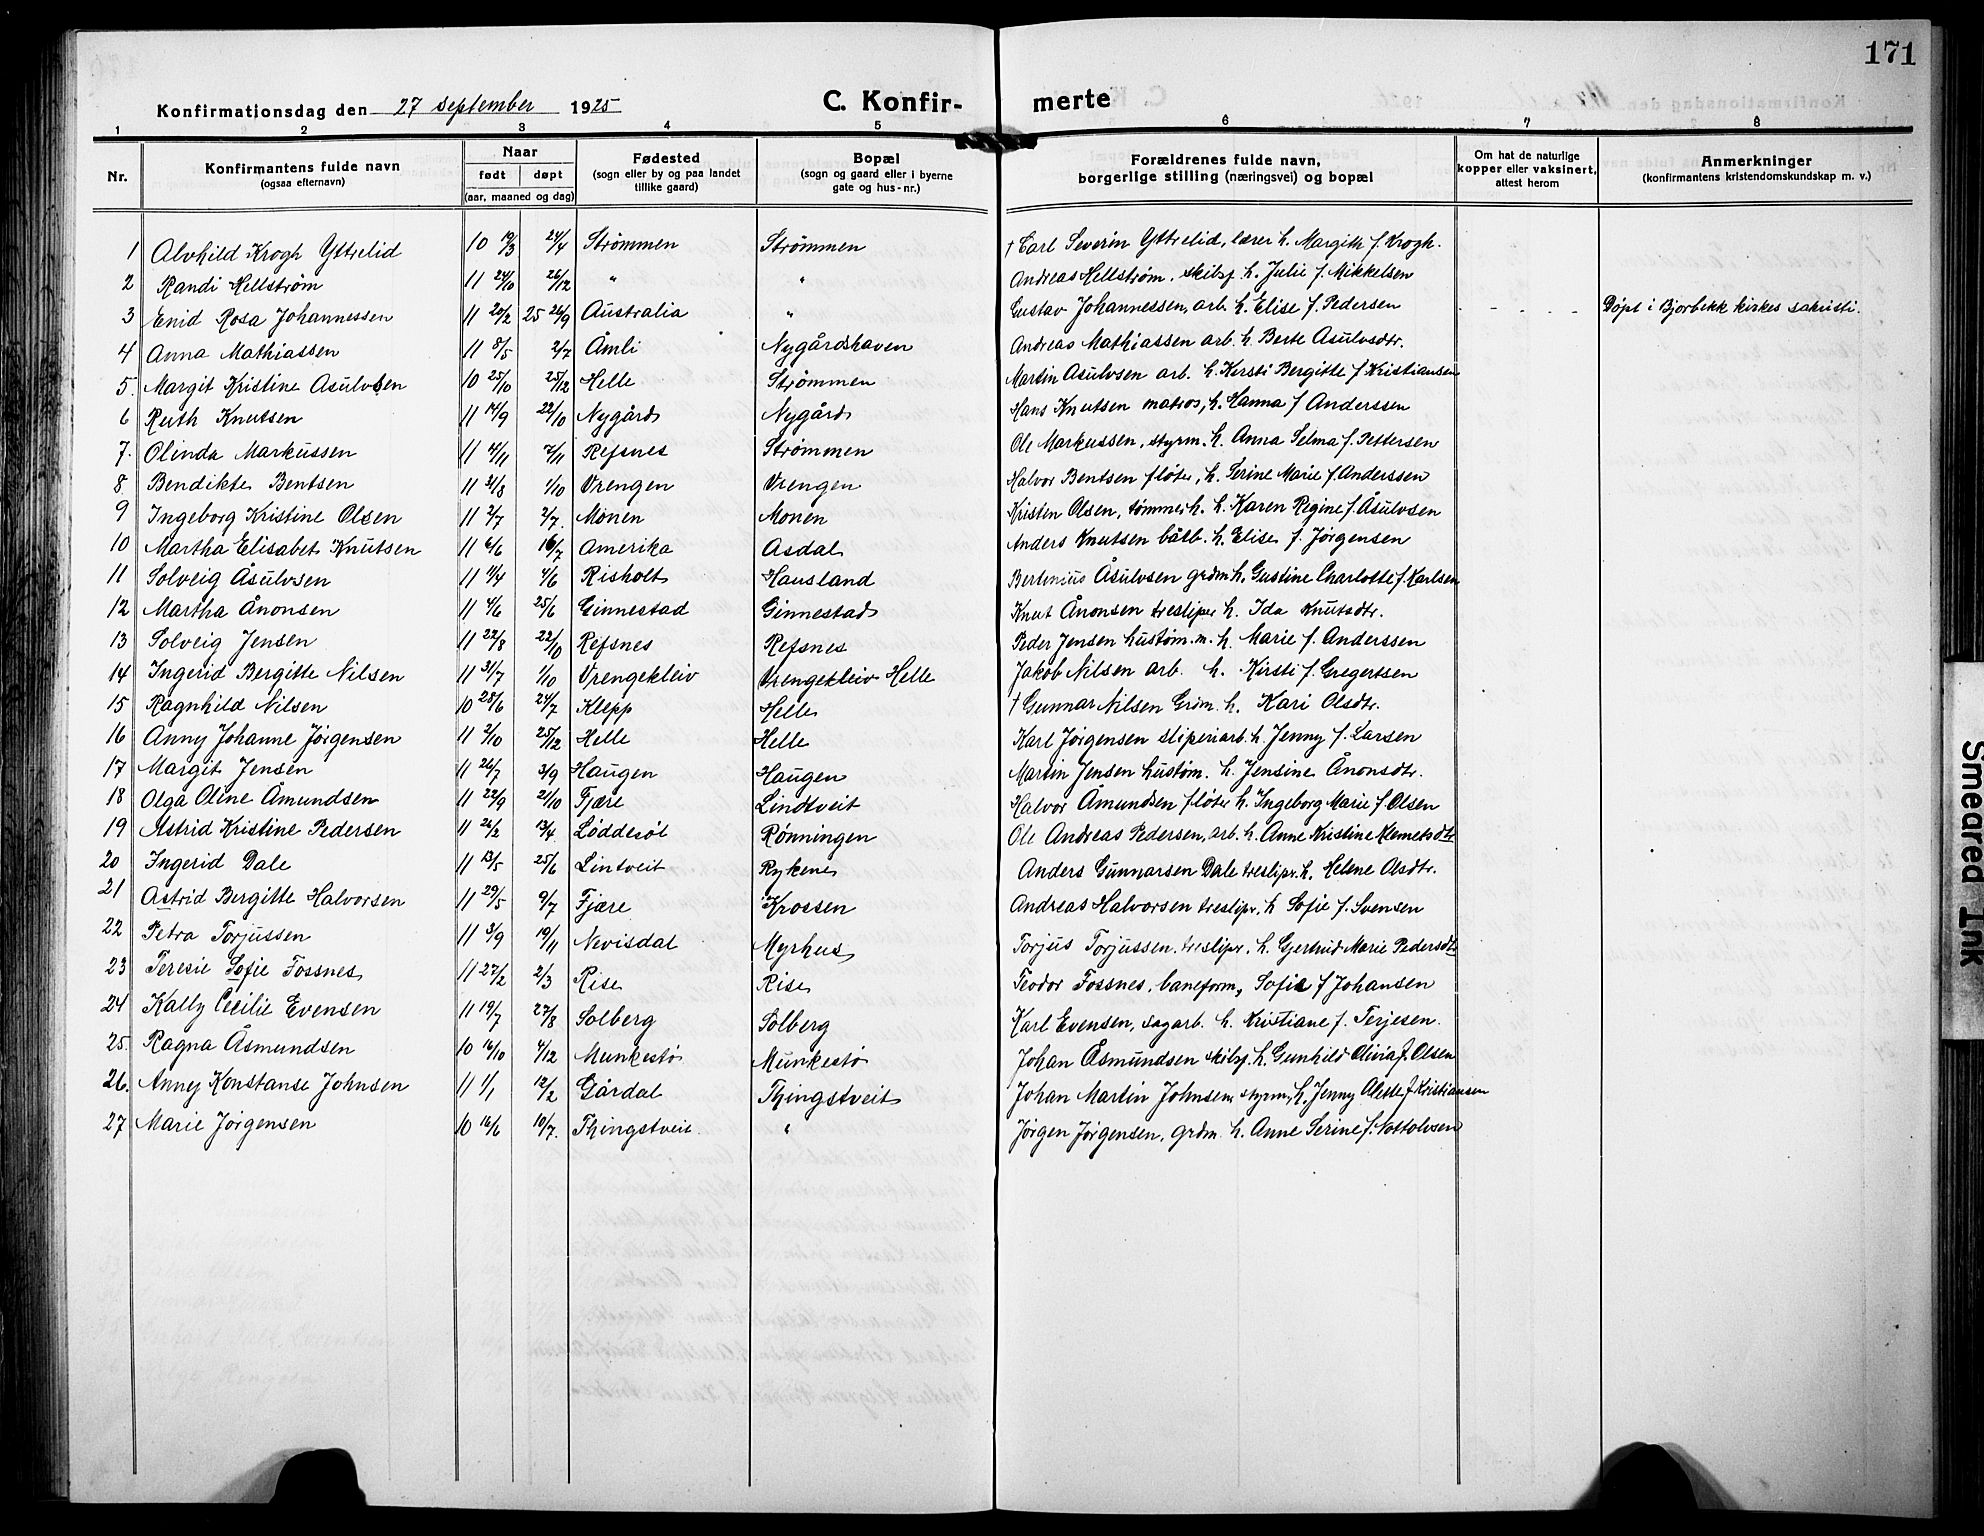 171
Konfirmationsdag den 27 september 1925 C. Konfir- merte
1 2 3 4 5 6 7 8
Nr. Konfirmantens fulde navn (ogsaa efternavn) Naar født døpt (aar, maaned og dag) Fødested (sogn eller by og paa landet tillike gaard) Bopæl (sogn og gaard eller i byerne gate og hus-nr.) Forældrenes fulde navn, borgerlige stilling (næringsvei) og bopæl Om hat de naturlige kopper eller vaksinert, attest herom Anmerkninger (konfirmantens kristendomskundskap m. v.)
1 Alvhild Krogh Yttrelid 10 19/3 24/4 Strømmen Strømmen † Carl Severin Yttrelid, lærer h. Margith f. Krogh.
2 Randi Hellstrøm 11 24/10 26/12 " " Andreas Hellstrøm, skibsf. h. Julie f. Mikkelsen
3 Enid Rosa Johannessen 11 20/2 25 26/9 Australia " Gustav Johannessen, arb. h. Elise f. Pedersen - - - - Døpt i Bjorbekk kirkes sakristi.
4 Anna Mathiassen 11 8/5 2/7 Åmli Nygårdshaven Andreas Mathiassen arb. h. Berte Asulvsdtr.
5. Margit Kristine Asulvsen 10 25/10 25/12 Helle Strømmen Martin Asulvsen arb. h. Kirsti Bergitte f Kristiansen
6 Ruth Knutsen 11 14/9 22/10 Nygård Nygård Hans Knutsen matros, h. Hanna f Anderssen
7. Olinda Markussen 11 4/11 7/11 Refsnes Strømmen Ole Markussen, styrm. h. Anna Selma f. Pettersen
8 Bendikte Bentsen 11 31/8 1/10 Vrengen Vrengen Halvor Bentsen fløter, h. Serine Marie f. Anderssen
9 Ingeborg Kristine Olsen 11 2/7 2/7. Monen Monen Kristen Olsen, tømmerh. h. Karen Regine f. Åsulvsen
10 Martha Elisabet Knutsen 11 6/6 16/7 Amerika Asdal Anders Knutsen båtb. h. Elise f. Jørgensen
11 Solveig Åsulvsen 11 11/4 4/6 Risholt Hausland Bertenius Åsulvsen grdm. h. Gustine Charlotte f. Karlsen
12 Martha Ånonsen 11 4/6 25/6 Ginnestad Ginnestad Knut Ånonsen tresliper h. Ida Knutsdtr.
13 Solveig Jensen 11 22/8 22/10 Refsnes Refsnes Peder Jensen hustøm.m. h. Marie f. Anderssen
14 Ingerid Bergitte Nilsen 11 31/7 1/10 Vrengekleiv Vrengekleiv Helle Jakob Nilsen arb. h. Kirsti f. Gregertsen
15 Ragnhild Nilsen 10 28/6 24/7 Klepp Helle † Gunnar Nilsen Grdm. h. Kari Olsdtr.
16 Anny Johanne Jørgensen 11 2/10 25/12 Helle Helle Karl Jørgensen sliperiarb. h. Jenny f. Larsen
17 Margit Jensen 11 26/7 3/9 Haugen Haugen Martin Jensen hustøm. h. Jensine Ånonsdtr.
18 Olga Oline Åmundsen 11 22/9 21/10 Fjære Lindtveit Halvor Åmundsen fløter h. Ingeborg Marie f Olsen
19 Astrid Kristine Pedersen 11 26/2 13/4 Løddesøl Rønningen Ole Andreas Pedersen, arb. h. Anne Kristine Klemetsdtr
20 Ingerid Dale 11 13/5 25/6 Lintveit Rykene Anders Gunnarsen Dale treslipr. h. Helene Olsdtr.
21 Astrid Bergitte Halvorsen 11 29/5 9/7 Fjære Krossen Andreas Halvorsen treslipr. h Sofie f. Svensen
22 Petra Torjussen 11 3/9 19/11 Nevisdal Myrhus Torjus Torjussen. treslipr. h. Gjertrud Marie Pedersdtr
23 Teresie Sofie Fossnes 11 27/2 2/3 Rise Rise Teodor Fossnes, baneform, Sofie f Johansen
24 Kally Cecilie Evensen 11 19/7 27/8 Solberg Solberg Karl Evensen, sagarb. h. Kristiane f. Terjesen.
25. Ragna Åsmundsen 10 16/10 4/12 Munkestø Munkestø Johan Åsmundsen skibsf. h. Gunhild Olivia f. Olsen
26. Anny Konstanse Johnsen 11 1/1 12/2 Gårdal Thingstveit Johan Martin Johnsen, styrm, h. Jenny Alette f Kristiansen
27 Marie Jørgensen 10 16/6 10/7. Thingstveit. " Jørgen Jørgensen, grdm. h. Anne Serine f. Nottolvsen
Smeared Ink